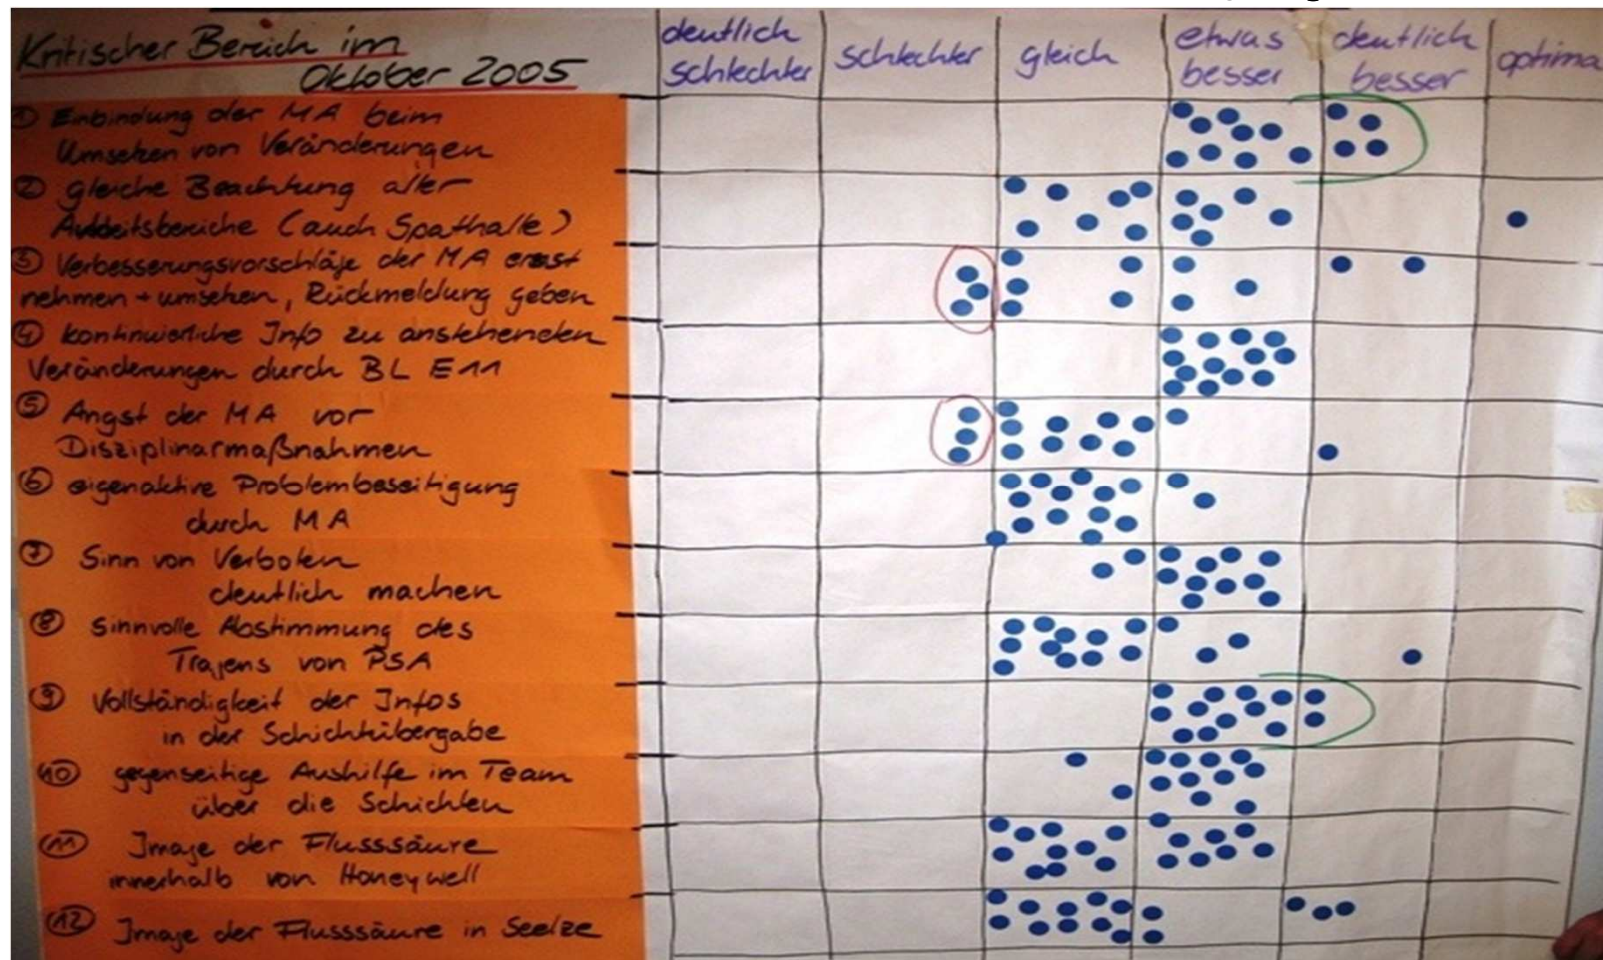 Kritischer Bereich im
Oktober 2005
deutlich
schlechter
schlechter
gleich
etwas
besser
deutlich
besser
optima
① Einbindung der MA beim
Umsetzen von Veränderungen
② gleiche Beachtung aller
Arbeitsbereiche (auch Spathalle)
③ Verbesserungsvorschläge der MA ernst
nehmen + umsetzen, Rückmeldung geben
④ kontinuierliche Info zu anstehenden
Veränderungen durch BL E11
⑤ Angst der MA vor
Disziplinarmaßnahmen
⑥ eigenaktive Problembeseitigung
durch MA
⑦ Sinn von Verboten
deutlich machen
⑧ Sinnvolle Abstimmung des
Tragens von PSA
⑨ Vollständigkeit der Infos
in der Schichtübergabe
⑩ gegenseitige Aushilfe im Team
über die Schichten
⑪ Image der Flusssäure
innerhalb von Honeywell
⑫ Image der Flusssäure in Seelze